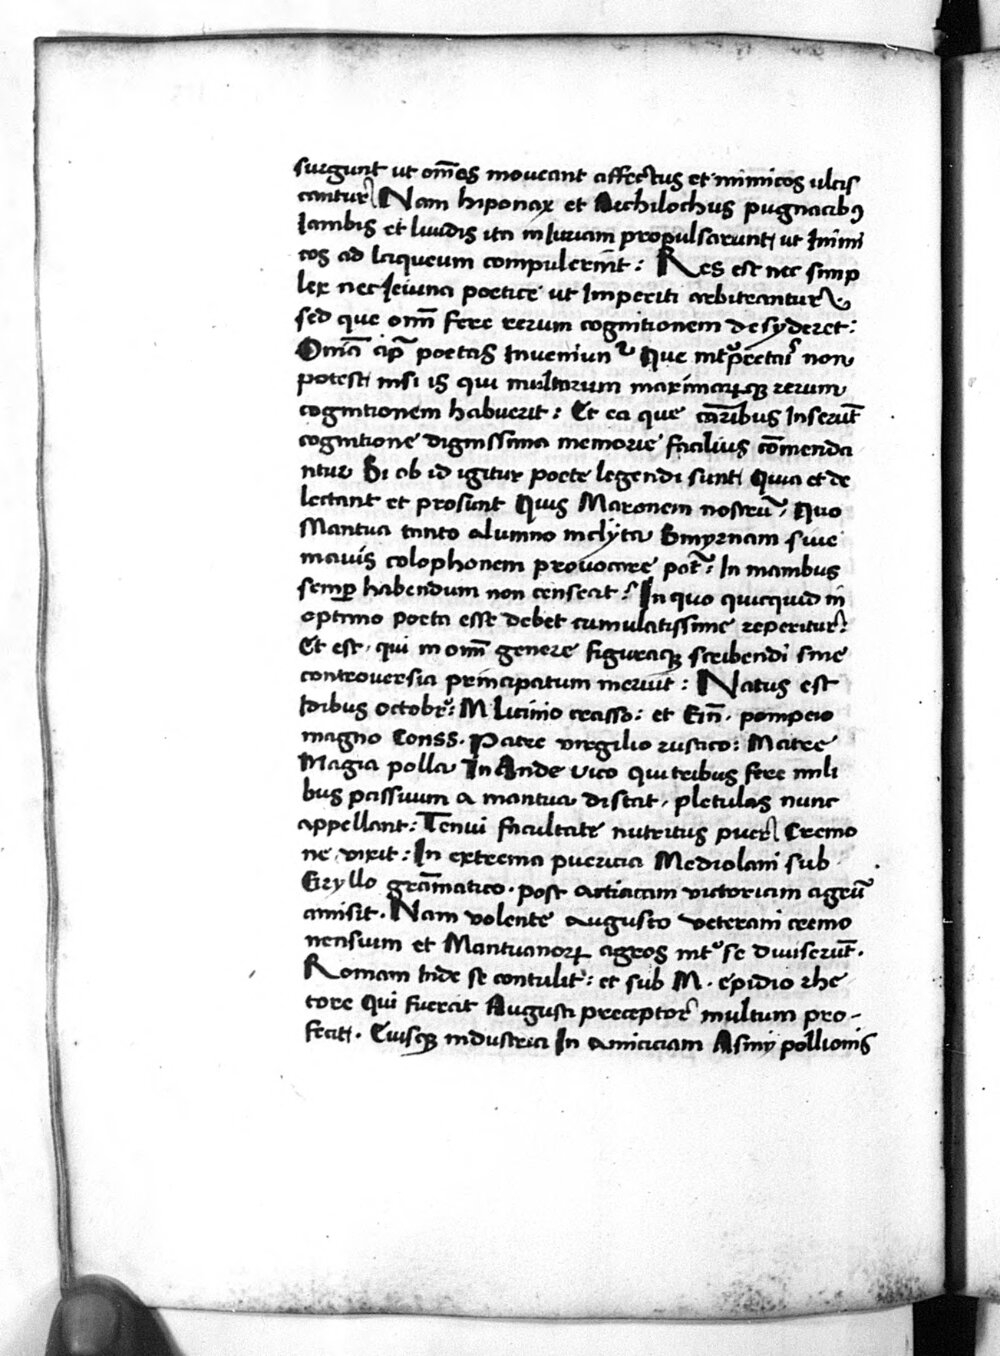 surgunt ut om̅es moueant affectus et inimicos ulcis
cantur Nam hiponax et Archilochus pugnacibꝰ
Iambis et liuidis ita in Iuriam propulsarunt, ut Inimi
cos ad laqueum compulerint: Res est nec simp
lex nec Ieiuna poetice ut Imperiti arbitrantur
sed que om̅i fere rerum cognitionem desyderet:
Om̅ia ap̅ poetas Inueniunꝉ Que
potest, nisi is qui multarum maximarꝝqꝫ rerum
cognitionem habuerit: Et ea que car̅ibus Inseru̅t
cognitione dignissima memorie facilius co̅menda
ntur Si ob id igitur poete legendi sunt, Quia et de
lectant et prosunt Quis Maronem nostru̅, Quo
Mantua tanto alumno inclyta Smyrnam siue
mauis colophonem prouocare pot̅: In manibus
semꝑ habendum non censeat: In quo quicquid in
optimo poeta esse debet cumulatissime reperitur:
Et est, qui in om̅i genere figuraqꝫ scribendi sine
controuersia principatum meruit: Natus est
Idibus octobr: M Licinio crasso: et Gn̅. pompeio
magno Conss. Patre virgilio rustico: Matre
Magia polla In Ande vico qui tribus fere mili
bus passuum a mantua distat, pletulas nunc
appellant: Tenui facultate nutritus puer Cremo
ne vixit: In extrema puericia Mediolani sub
Gryllo gra̅matico. post actiacam victoriam agru̅
amisit. Nam volente augusto veterani cremo
nensium et Mantuanorꝝ agros int̉ se diuiseru̅t.
Romam Inde se contulit: et sub M. epidio rhe
tore Qui fuerat Augusti preceptor multum pro-
fecit. Cuiusqꝫ industria In amiciciam Asinij pollionis